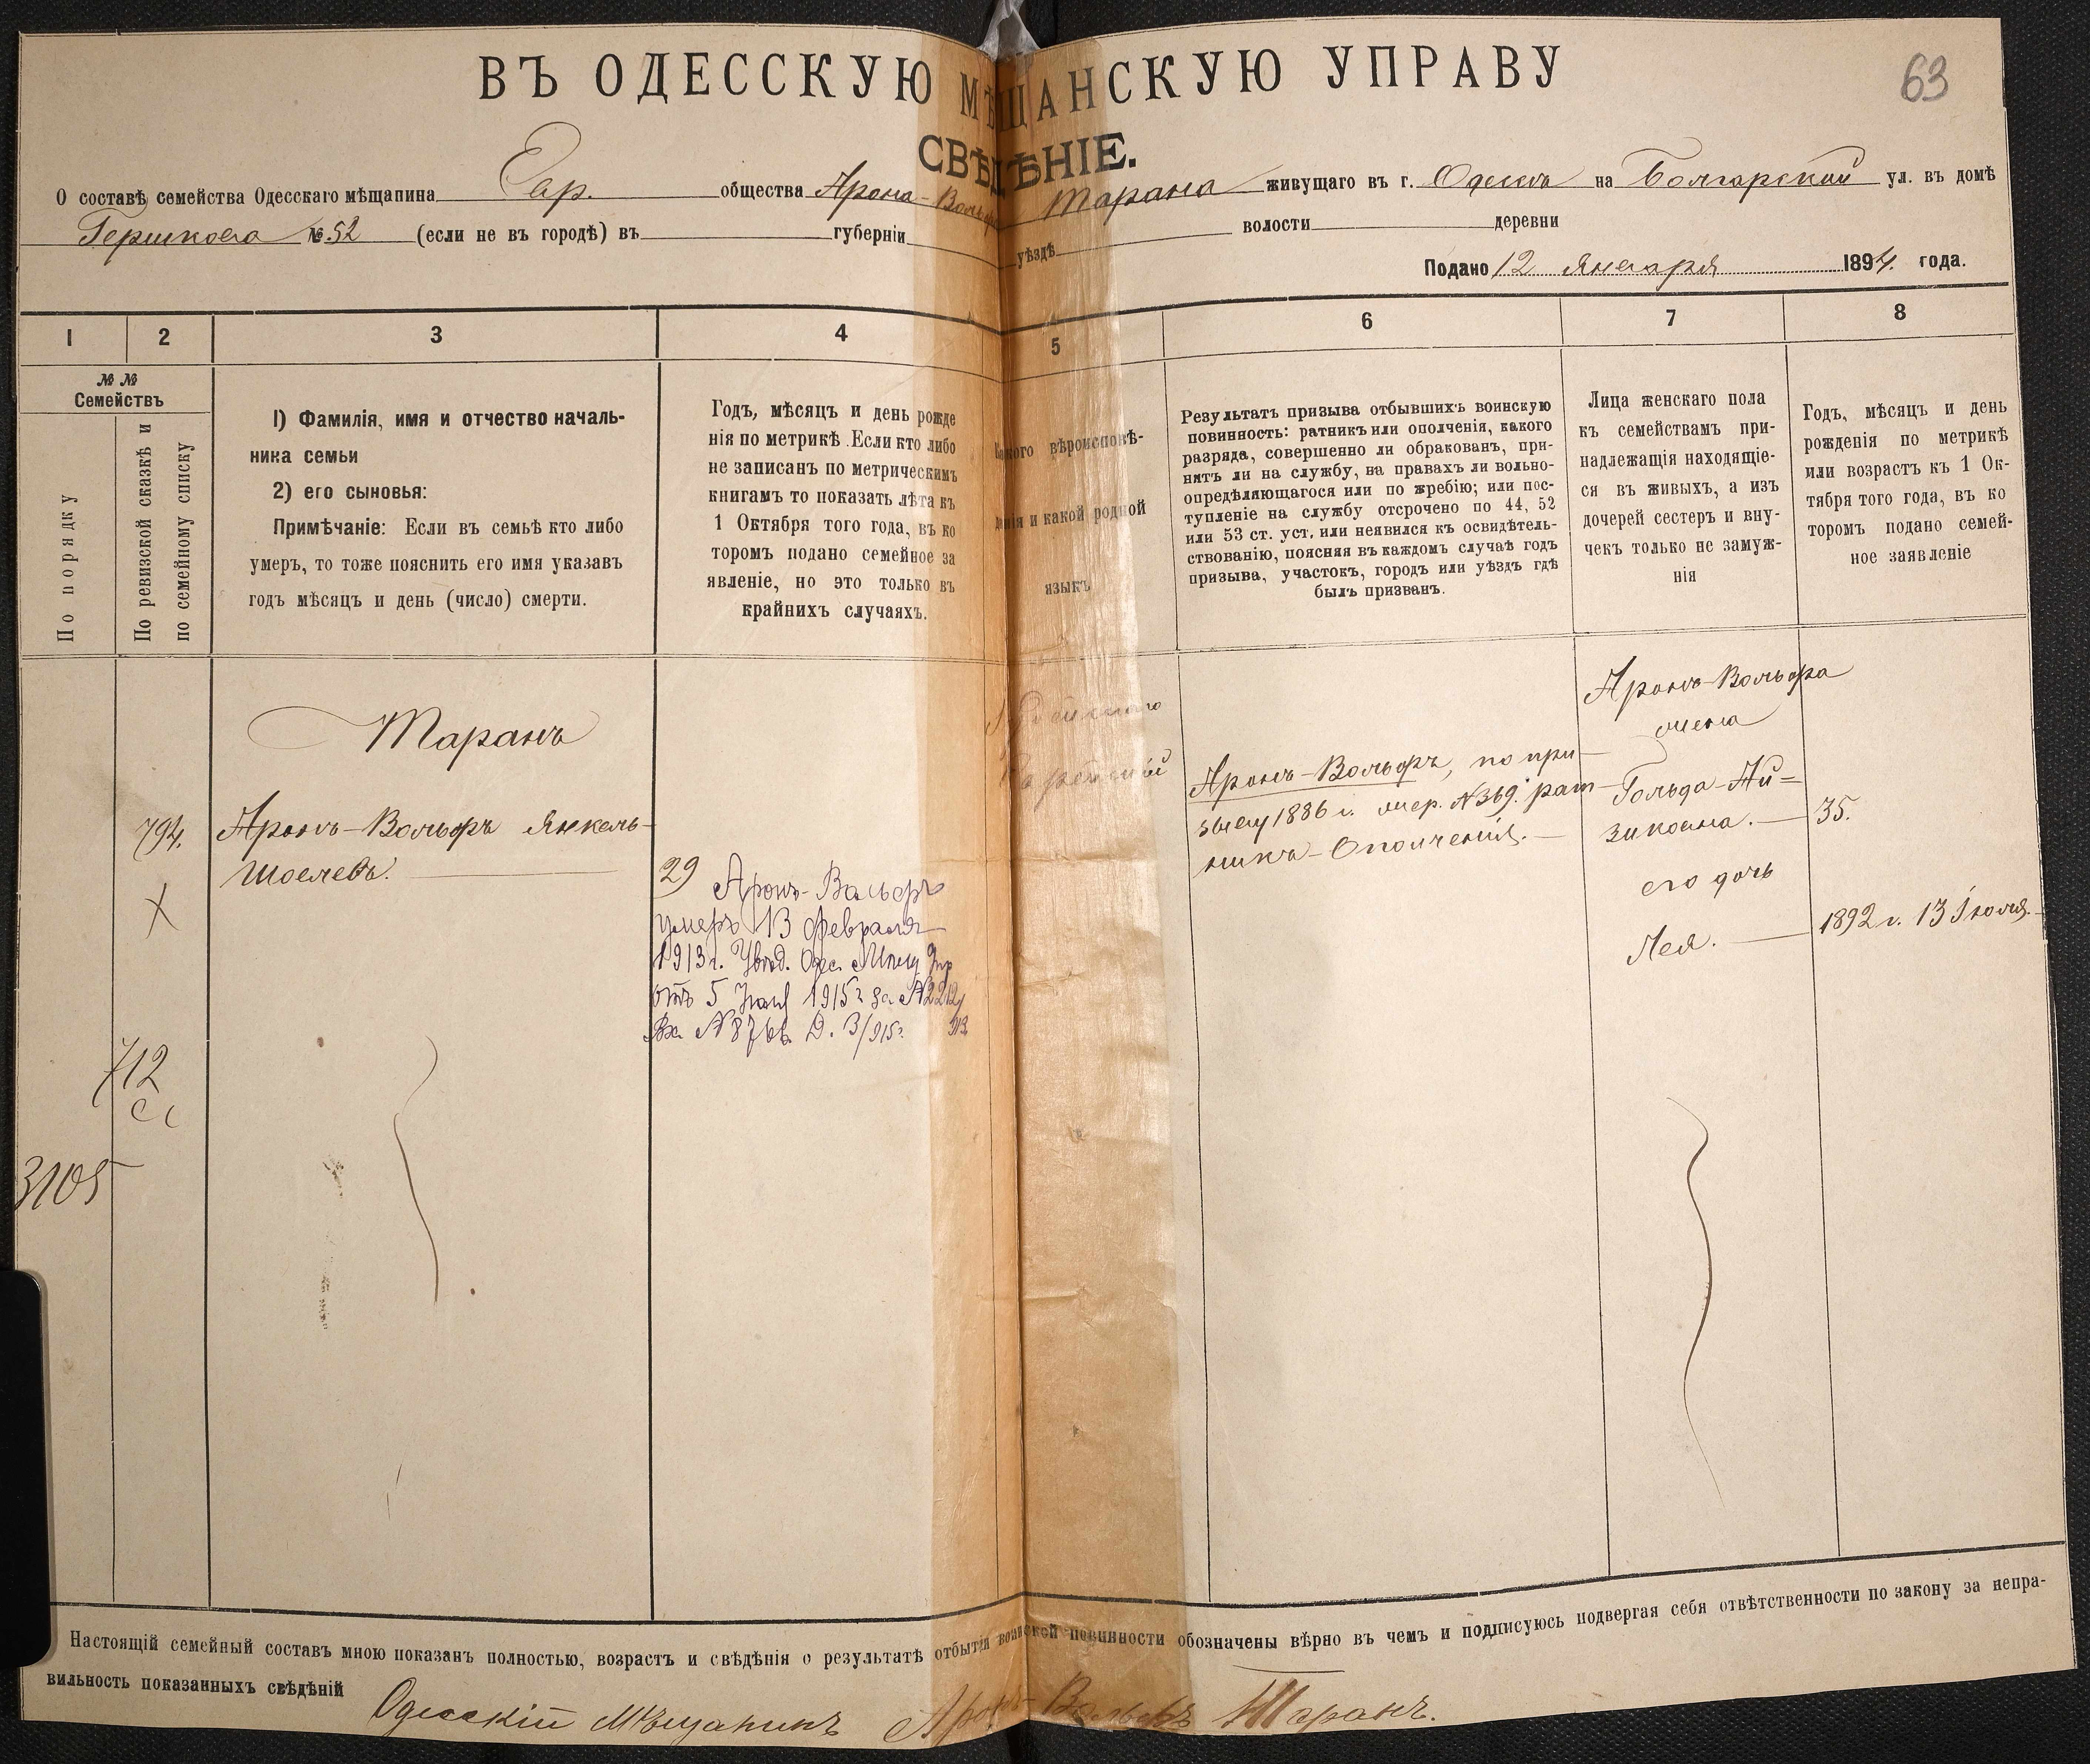 63
ВЪ ОДЕССКУЮ МѢЩАНСКУЮ УПРАВУ
СВѢДѢНІЕ.
О составѣ семейства Одесскаго мѣщанина Еар. общества Арона-Вольфа Тарана живущаго въ г. Одессѣ на Болгарской ул. въ домѣ
Гершкова № 52 (если не въ городѣ) въ губерніи уѣздѣ волости деревни
Подано 12 Января 1894 года.
1 2 3 4 5 6 7 8
№ №
Семействъ
По порядку
По ревизской сказкѣ и
по семейному списку
1) Фамилія, имя и отчество началь-
ника семьи
2) его сыновья:
Примѣчаніе: Если въ семьѣ кто либо
умеръ, то тоже пояснить его имя указавъ
годъ мѣсяцъ и день (число) смерти.
Годъ, мѣсяцъ и день рожде
нія по метрикѣ. Если кто либо
не записанъ по метрическимъ
книгамъ то показать лѣта къ
1 Октября того года, въ ко
торомъ подано семейное за
явленіе, но это только въ
крайнихъ случаяхъ.
Какого вѣроисповѣ-
данія и какой родной
языкъ
Результатъ призыва отбывшихъ воинскую
повинность: ратникъ или ополченія, какого
разряда, совершенно ли обракованъ, при-
нятъ ли на службу, на правахъ ли вольно-
опредѣляющагося или по жребію; или пос-
тупленіе на службу отсрочено по 44, 52
или 53 ст. уст. или неявился къ освидѣтель-
ствованію, поясняя въ каждомъ случаѣ годъ
призыва, участокъ, городъ или уѣздъ гдѣ
былъ призванъ.
Лица женскаго пола
къ семействамъ при-
надлежащія находящіе-
ся въ живыхъ, а изъ
дочерей сестеръ и вну-
чекъ только не замуж-
нія
Годъ, мѣсяцъ и день
рожденія по метрикѣ
или возрастъ къ 1 Ок-
тября того года, въ ко
торомъ подано семей-
ное заявленіе
794.
X
712
3105
Таранъ
Аронъ-Вольфъ Янкель-
Шоелевъ.
29
Аронъ-Вольфъ
умеръ 13 февраля
1913 г. Увѣд. Одес. Мѣщ Упр
отъ 5 1915 г за №2212/
Вх. №8766 Д. 3/915 г. 913
Іудейскаго
Еврейскій
Аронъ-Вольфъ, по при-
зыву 1886 г. жер. №369. рат-
никъ-Ополченія.
Аронъ-Вольфа
жена
Гольда-Ай-
зикова. 35.
его дочь
Лея. 1892 г. 13 Іюля.
Настоящій семейный составъ мною показанъ полностью, возрастъ и свѣдѣнія о результатѣ отбытія воинской повинности обозначены вѣрно въ чемъ и подписуюсь подвергая себя отвѣтственности по закону за непра-
вильность показанныхъ свѣдѣній
Одесскій мѣщанинъ Аронъ-Вольфъ Таранъ.